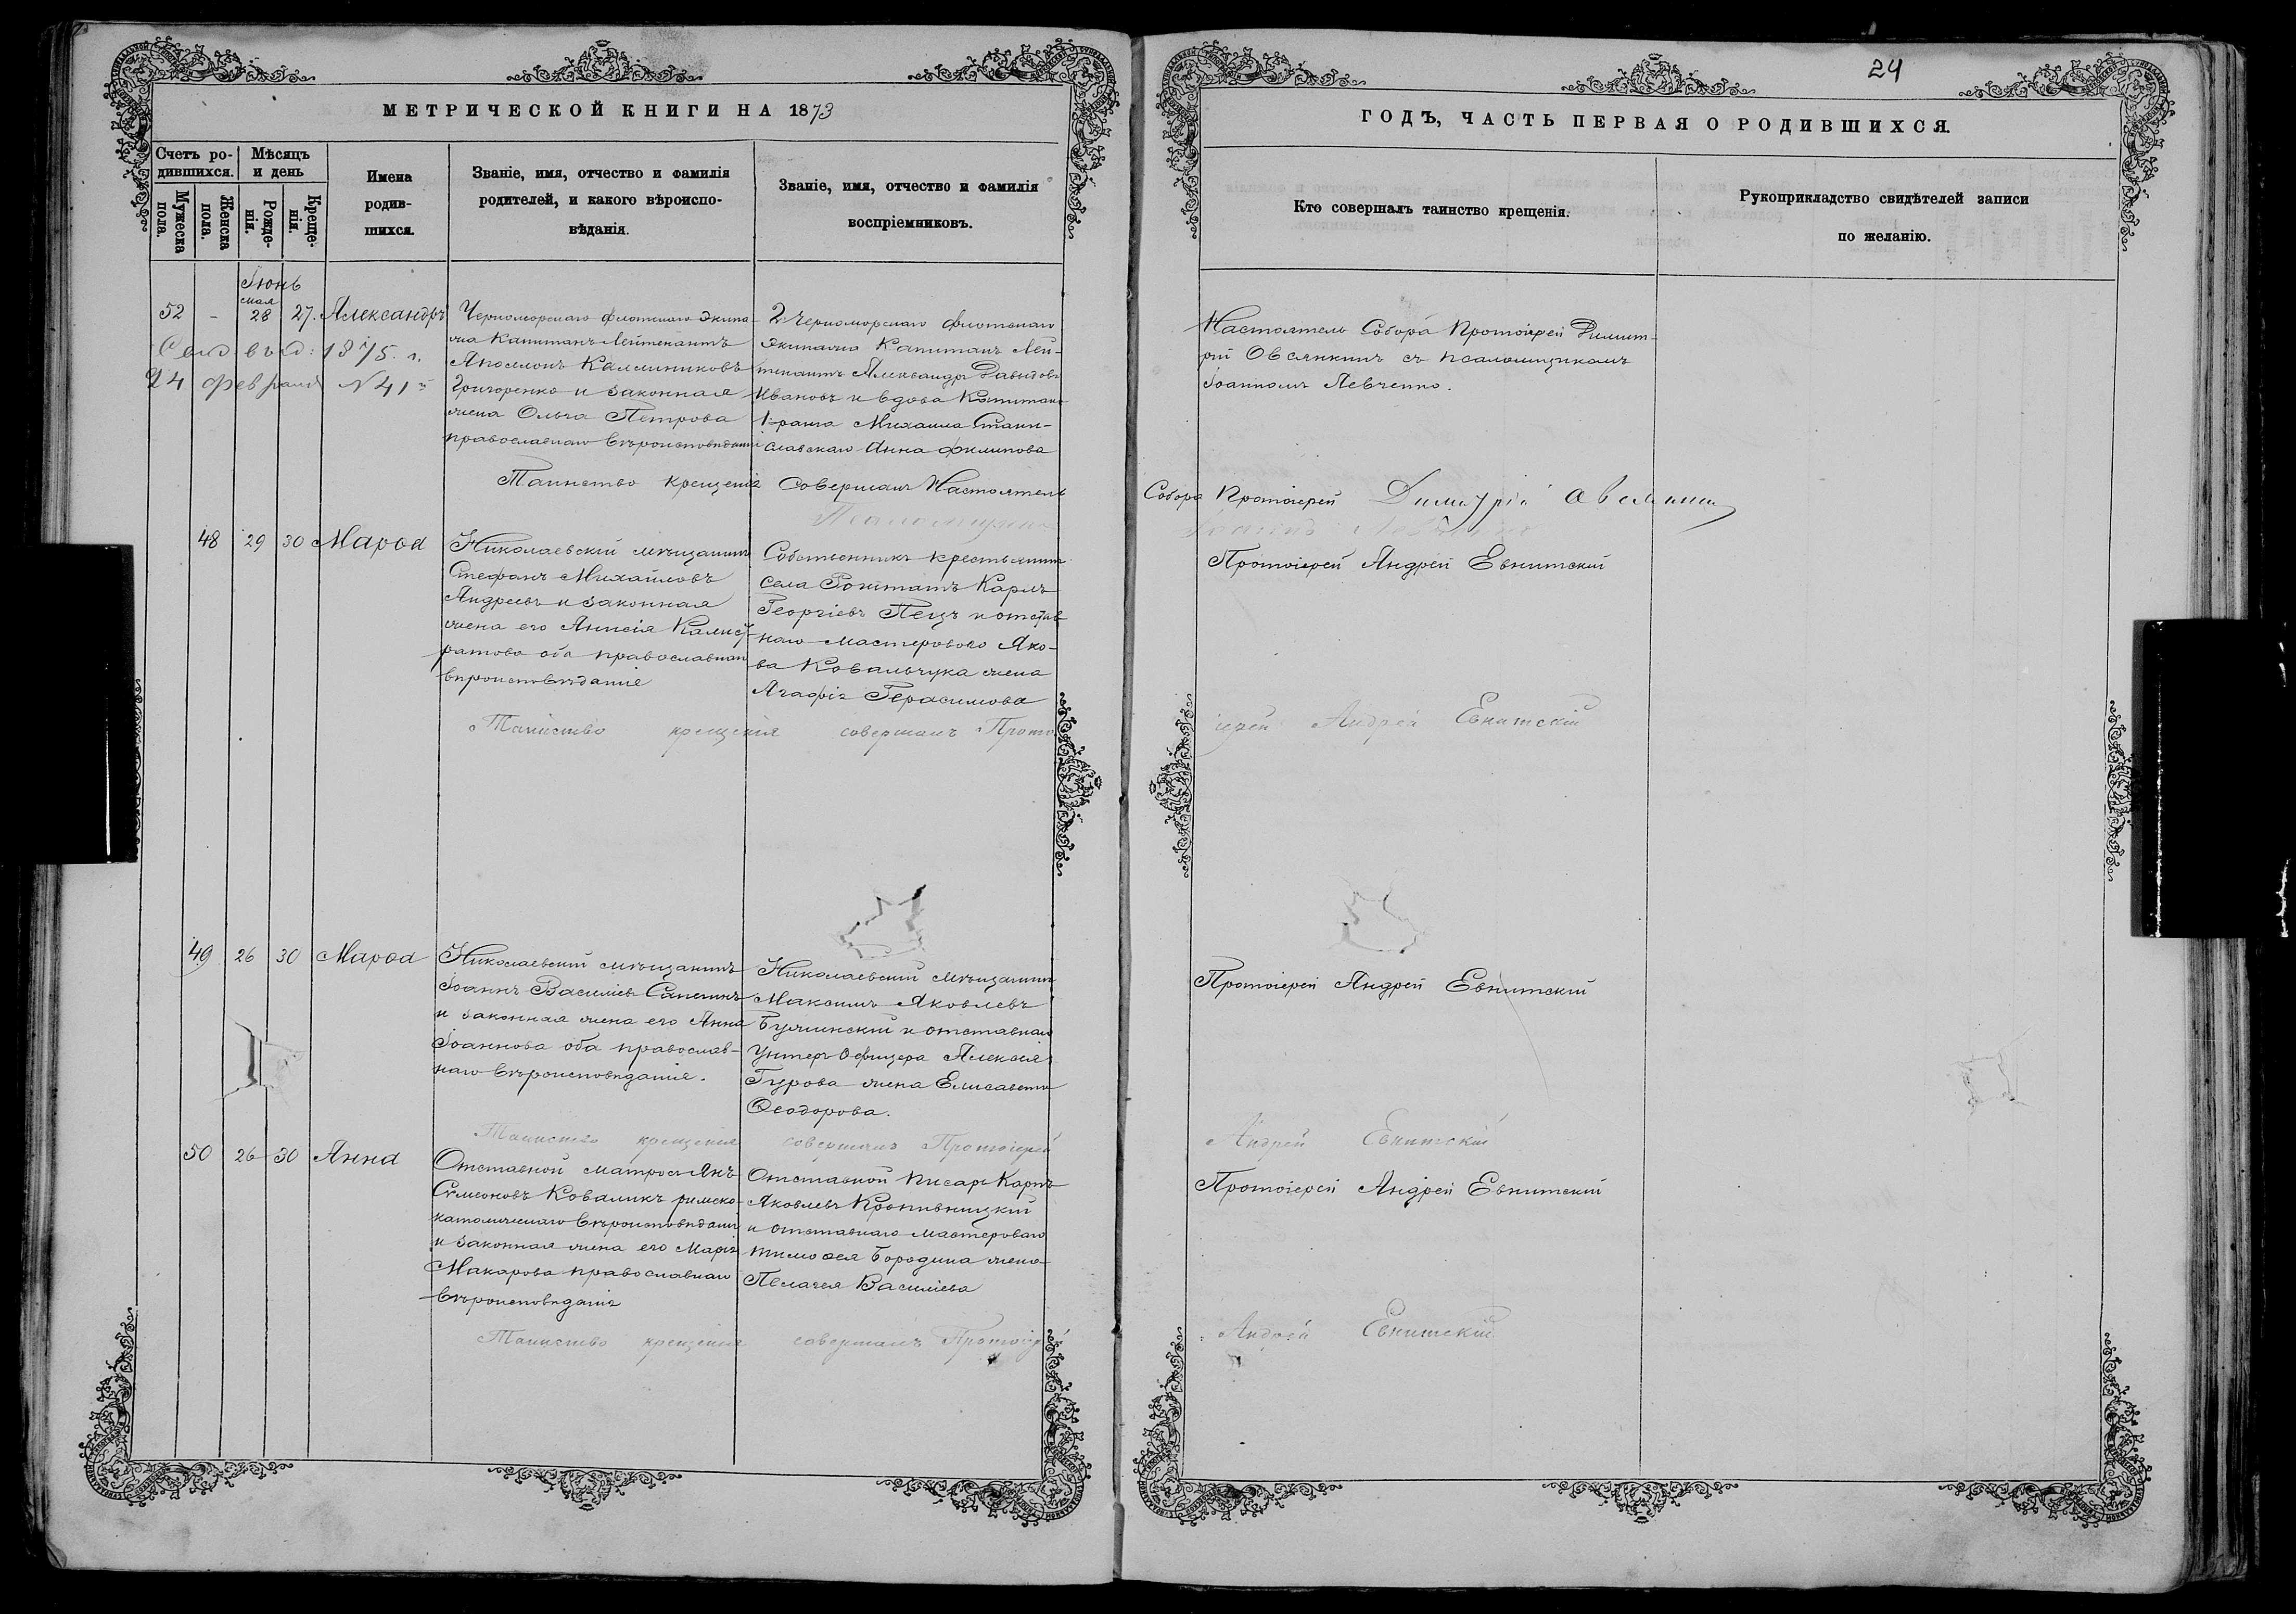 МЕТРИЧЕСКОЙ КНИГИ НА 1873
Счетъ ро-
дившихся.
Мѣсяцъ
и день
Мужеска
пола.
Женска
пола.
Рожде-
нія.
Креще-
нія.
Имена
родив-
шихся.
Званіе, имя, отчество и фамилія
родителей, и какого вѣроиспо-
вѣданія.
Званіе, имя, отчество и фамилія
воспріемниковъ.
Іюнь
мая
52 - 28 27. Александръ
1875. г.
24 февраля N 41
Черноморскаго флотскаго экипа
жа Капитанъ Лейтенантъ
Калинниковъ
Григоренко и законная
жена Ольга Петрова
православнаго вѣроисповѣданія
2 Черноморскаго флотскаго
экипажа Капитанъ Лей-
тенантъ Александръ Давыдовъ
Ивановъ и вдова Капитана
1 ранга Михаила Стани-
славскаго Анна Филипова
Таинство крещенія совершалъ Настоятель
48 29 30 Марѳа
Николаевскій мѣщанинъ
Стефанъ Михайловъ
Андреевъ и законная
жена его Анисія Калист
ратова оба православнаго
вѣроисповѣданія
Собственникъ крестьянинъ
села Карлъ
Георгіевъ Пецъ и отстав
наго мастероваго Яко-
ва Ковальчука жена
Агафія Герасимова
Таинство крещенія совершалъ Прото
49 26 30 Марѳа
Николаевскій мѣщанинъ
Іоаннъ Василіевъ Сапегинъ
и законная жена его Анна
Іоаннова оба православ-
наго вѣроисповѣданія.
Николаевскій мѣщанинъ
Максимъ Яковлевъ
и отставнаго
Унтеръ Офицера Алексѣя
Гурова жена Елисавета
Ѳеодорова.
Таинство крещенія совершалъ Протоіерей
50 26 30 Анна
Отставной матросъ Янъ
Симеоновъ Коваликъ римско-
католическаго вѣроисповѣданія
и законная жена его Марія
Макарова православнаго
вѣроисповѣданія
Отставной писарь Карпъ
Яковлевъ Кропивницкій
и отставнаго мастероваго
Тимоѳея Бородина жена
Пелагея Василіева
Таинство крещенія совершалъ Протоіерей
24
ГОДЪ, ЧАСТЬ ПЕРВАЯ О РОДИВШИХСЯ.
Кто совершалъ таинство крещенія.
Рукоприкладство свидѣтелей записи
по желанію.
Настоятель Собора Протоіерей Димит-
рій Овсянкинъ съ псаломщикомъ
Іоанномъ Левченко.
Собора Протоіерей Димитрій Овсянкинъ
Протоіерей Андрей Евнитскій
іерей Андрей Евнитскій
Протоіерей Андрей Евнитскій
Андрей Евнитскій
Протоіерей Андрей Евнитскій
Андрей Евнитскій